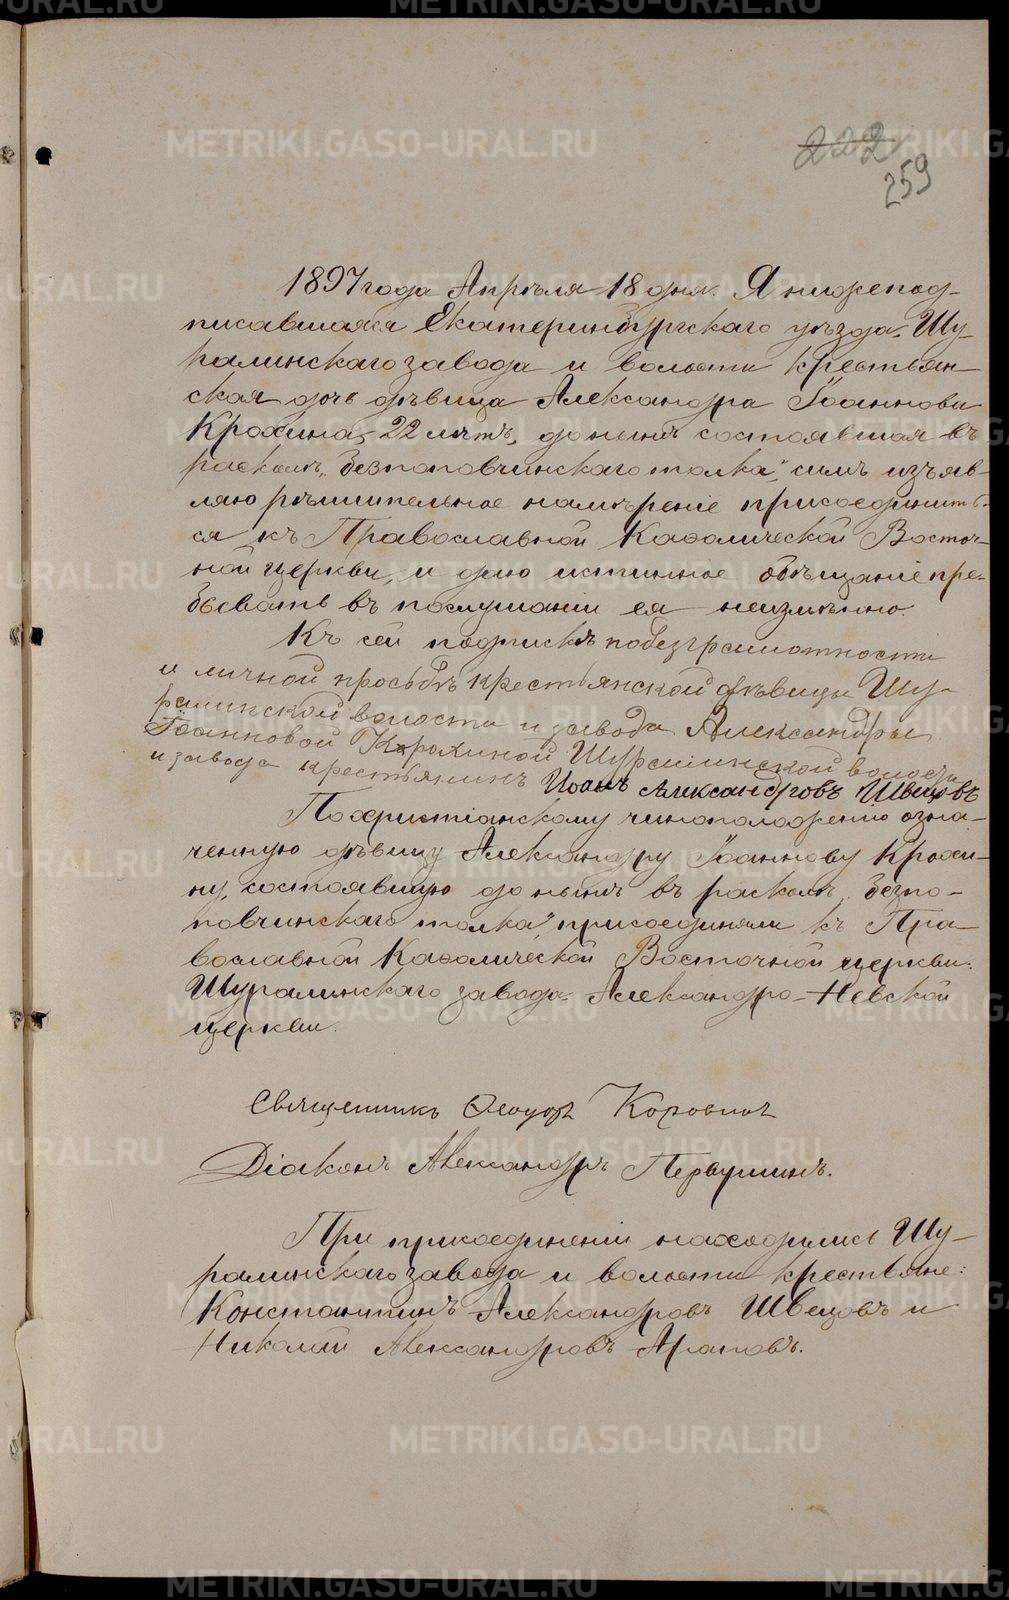 222
259
1897 года Апрѣля 18 дня. Я нижепод-
писавшаяся Екатеринбургскаго уѣзда, Шу-
ралинскаго завода и волости крестьян-
ская дочь дѣвица Александра Іоаннова
Крохина, 22 лѣтъ, донынѣ состоявшая въ
расколѣ „безпоповчинскаго толка“, симъ изъяв-
ляю рѣшительное намѣреніе присоединить-
ся къ Православной Каѳолической Восточ-
ной церкви, и даю истинное обѣщаніе пре-
бывать въ послушаніи ея неизмѣнно.
Къ сей подпискѣ по безграмотности
и личной просьбѣ крестьянской дѣвицы Шу-
ралинской волости и завода Александры
Іоанновой Крохиной Шуралинской волости
и завода крестьянинъ Иоанъ Александровъ Швецовъ
По христіанскому чиноположенію озна-
ченную дѣвицу Александру Іоаннову Крохи-
ну, состоявшую до нынѣ въ расколѣ „безпо-
повчинскаго толка“, присоединяли къ Пра-
вославной Каѳолической Восточной церкви:
Шуралинскаго завода Александро-Невской
церкви.
Священникъ Ѳеодоръ Коровинъ
Діаконъ Александръ Первушинъ.
При присоединеніи находились Шу-
ралинскаго завода и волости крестьяне:
Константинъ Александровъ Швецовъ и
Николай Александровъ Араповъ.
METRIKI.GASO-URAL.RU